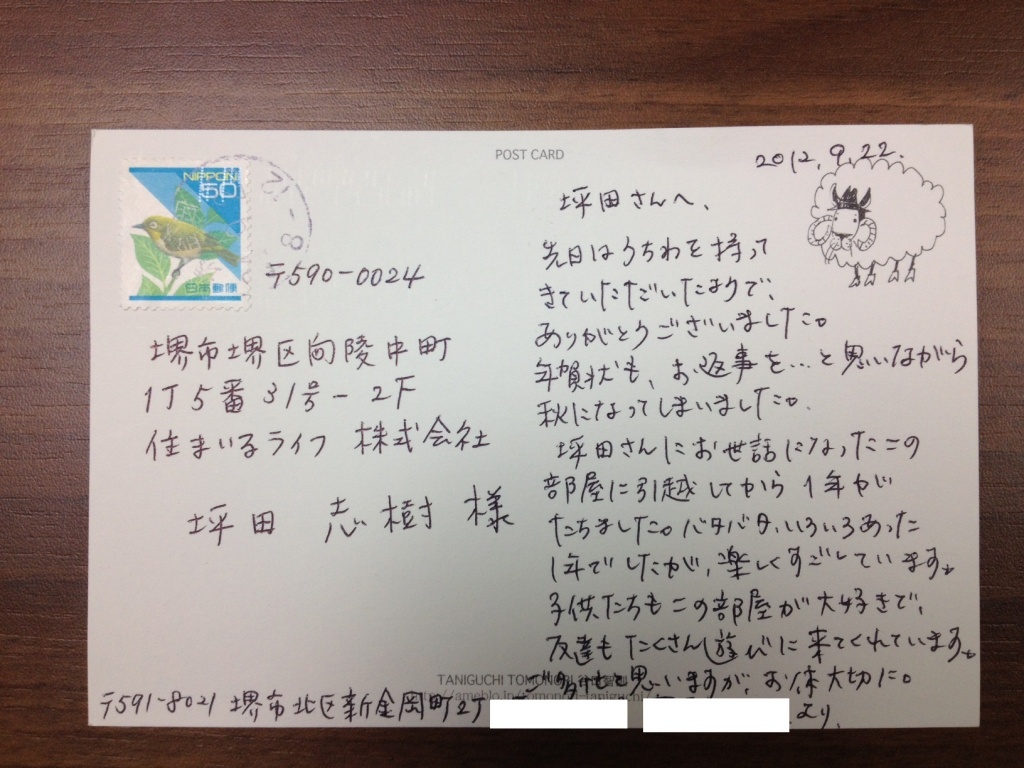 POST CARD
NIPPON
50
日本郵便
12
-8
〒590-0024
堺市堺区向陵中町
1丁5番31号-2F
住まいるライフ 株式会社
坪田 志樹 様
2012.9.22.
坪田さんへ、
先日はうちわを持って
きていただいたようで、
ありがとうございました。
年賀状も、お返事を…と思いながら
秋になってしまいました。
坪田さんにお世話になったこの
部屋に引越してから1年が
たちました。バタバタ、いろいろあった
1年でしたが、楽しくすごしています。
子供たちもこの部屋が大好きで、
友達もたくさん遊びに来てくれています。
ご多忙と思いますが、お体大切に。
TANIGUCHI TOMONORI
http://ameblo.jp/tomonori-taniguchi/
〒591-8021 堺市北区新金岡町2丁
より、